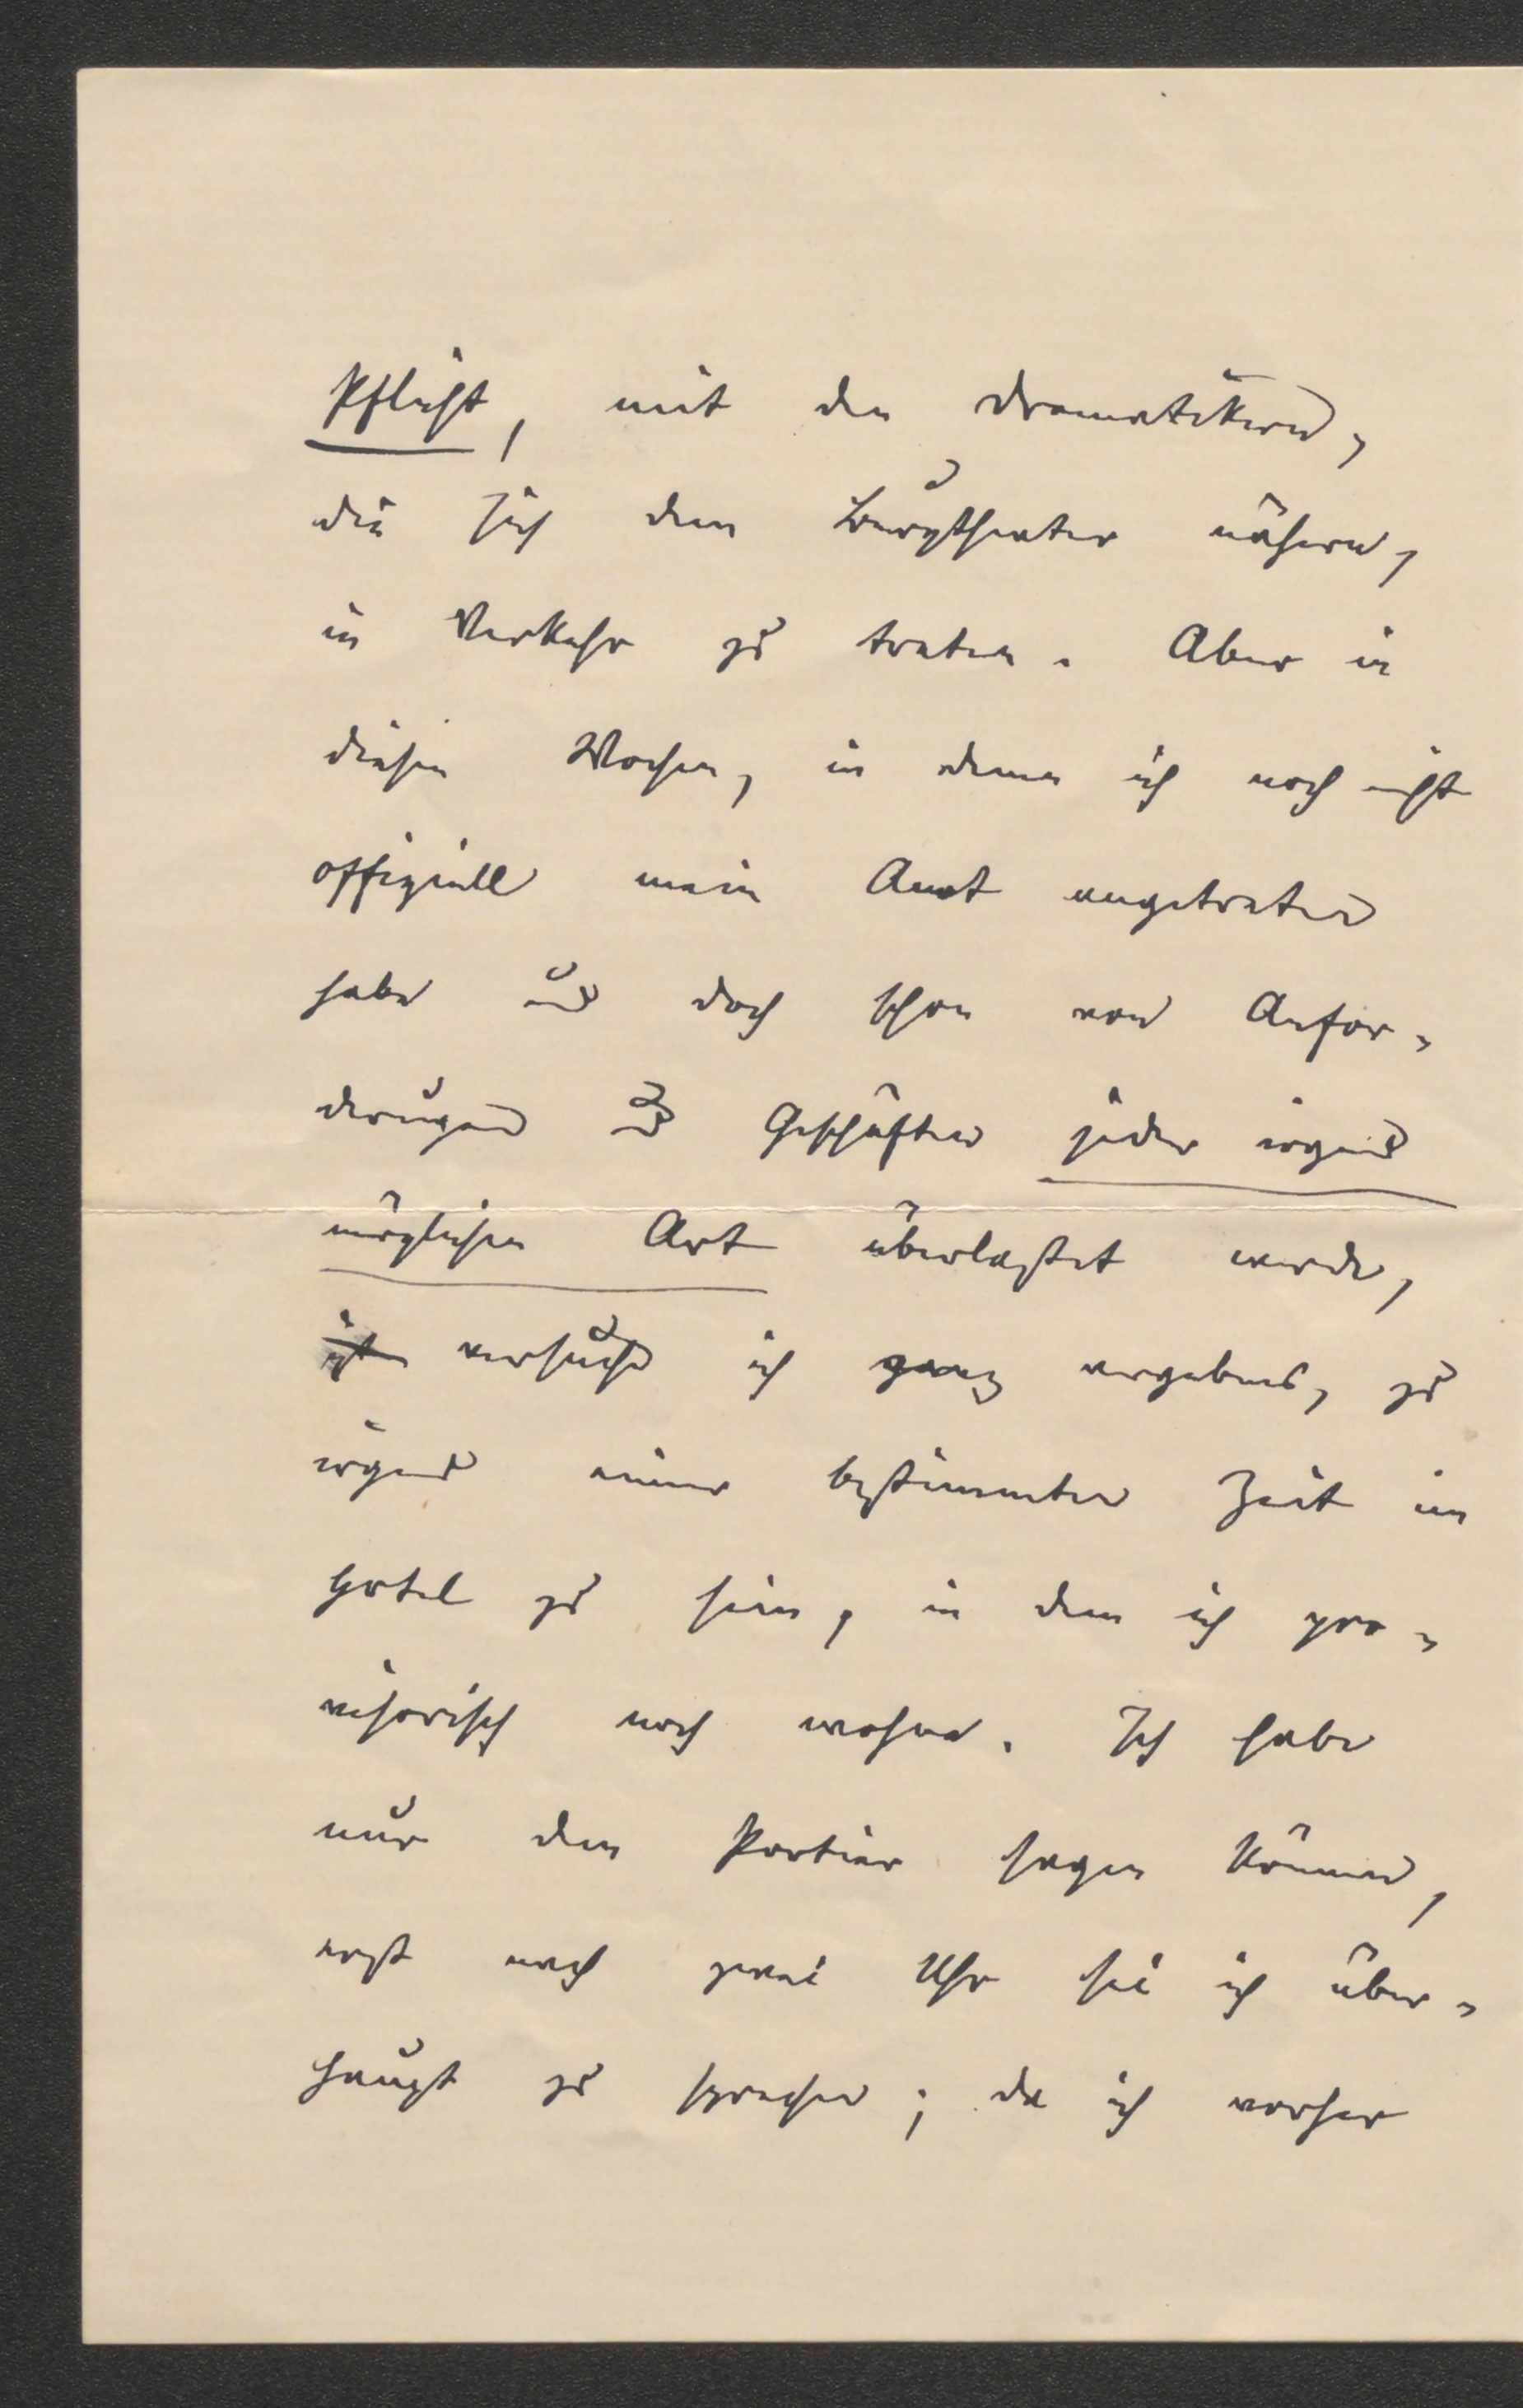 Pflicht, mit den Dramatikern,
die sich dem Burgtheater nähern,
in Verkehr zu treten. Aber in
diesen Wochen, in denen ich noch nicht
offiziell mein Amt angetreten
habe und doch schon von Anfor-
derungen und Geschäften jeder irgend
möglichen Art überlastet werde,
ist versuche ich ganz vergebens, zu
irgend einer bestimmten Zeit im
Hotel zu sein, in dem ich pro-
visorisch noch wohne. Ich habe
nur dem Portier sagen können,
erst nach zwei Uhr sei ich über-
haupt zu sprechen; da ich vorher